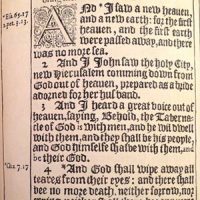 * Esa. 65.17
2.pet.3.13.
AND * I saw a new heauen,
and a new earth: for the first
heauen, and the first earth
were passed away, and there
was no more sea.
2 And I John saw the holy City,
new Hierusalem comming down from
God out of heauen, prepared as a bride
adorned for her husband.
3 And I heard a great voice out of
heauen, saying, Behold, the Taberna-
cle of God is with men, and he wil dwell
with them, and they shall be his people,
and God himselfe shalbe with them, and
be their God.
* Cha. 7.17
4 * And God shall wipe away all
teares from their eyes: and there shall
bee no more death, neither sorrow, nor